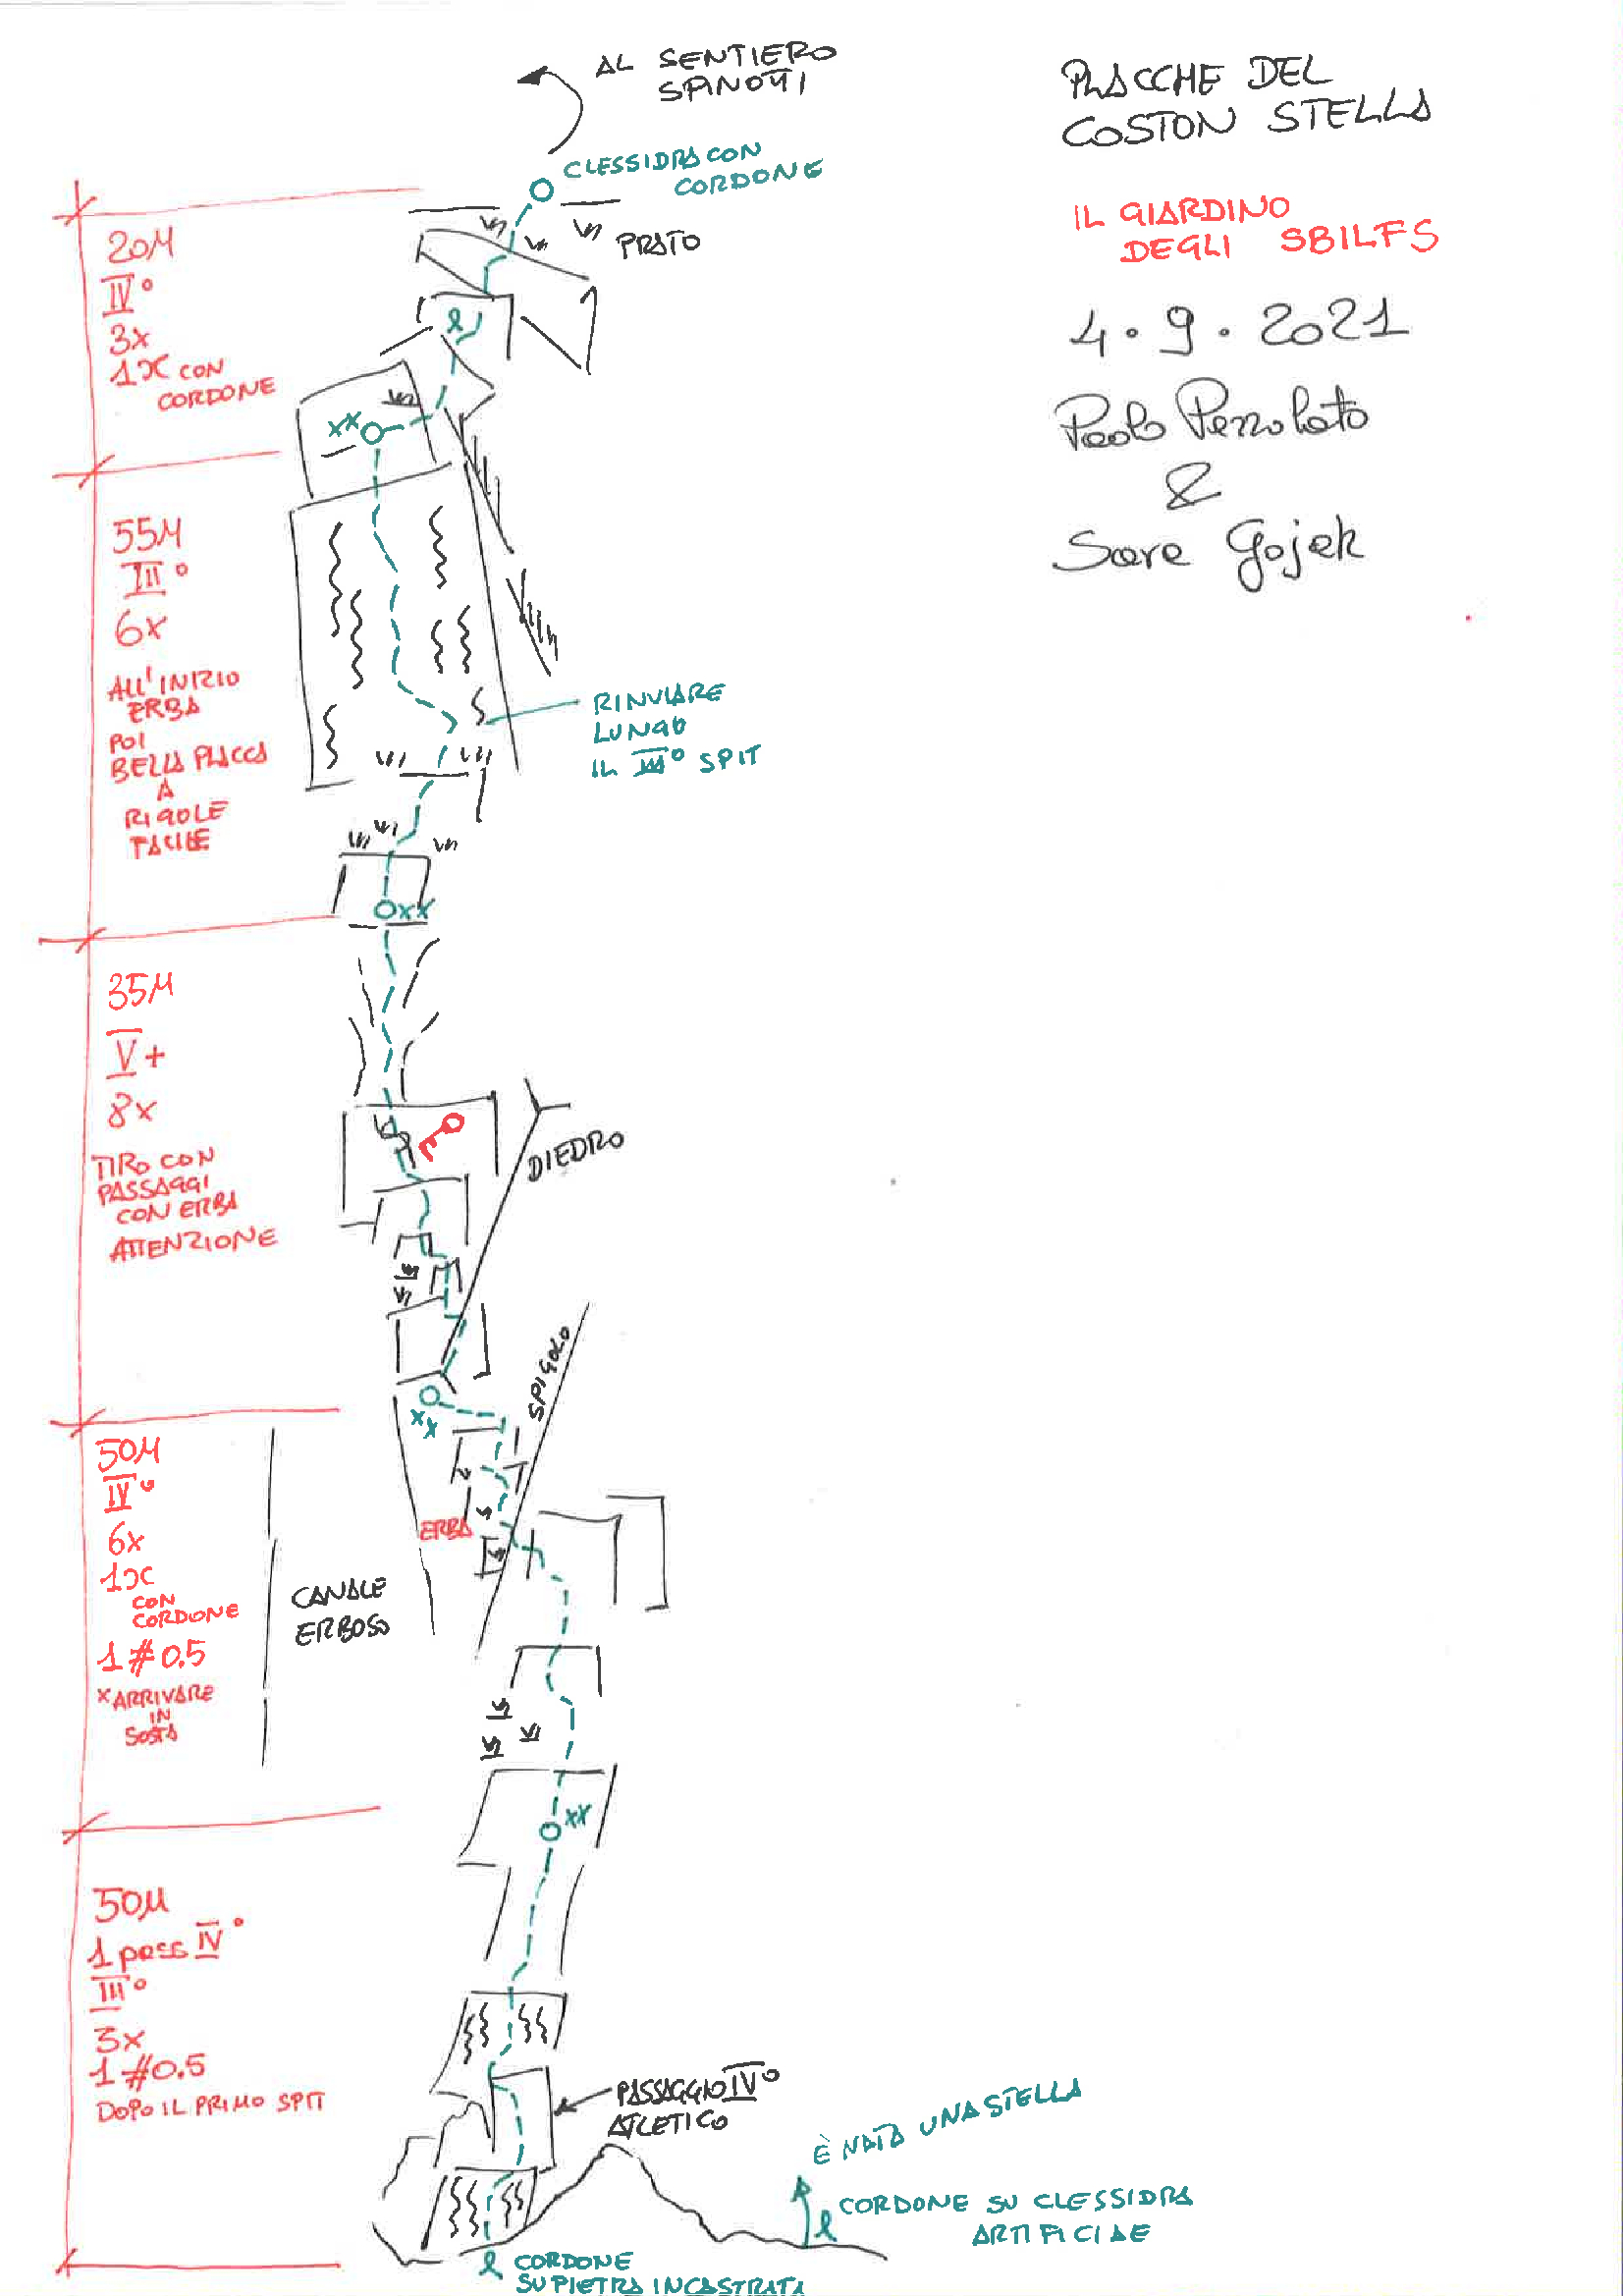 AL SENTIERO
SPINOTTI
PLACCHE DEL
COSTON STELLA
IL GIARDINO
DEGLI SBILFS
4.9.2021
Paolo Pezzolato
&
Sara Gojak
CLESSIDRA CON
CORDONE
PRATO
20M
IV°
3x
1X CON
CORDONE
xx
55M
III°
6x
ALL'INIZIO
ERBA
POI
BELLA PLACCA
A
RIGOLE
FACILE
RINVIARE
LUNGO
IL III° SPIT
xx
35M
V+
8x
TIRO CON
PASSAGGI
CON ERBA
ATTENZIONE
DIEDRO
SPIGOLO
xx
50M
IV°
6x
1X
CON
CORDONE
1#0.5
x ARRIVARE
IN
SOSTA
ERBA
CANALE
ERBOSO
xx
50M
1 pass IV°
III°
3x
1#0.5
DOPO IL PRIMO SPIT
PASSAGGIO IV°
ATLETICO
È NATA UNA STELLA
CORDONE SU CLESSIDRA
ARTIFICIALE
CORDONE
SU PIETRA INCASTRATA